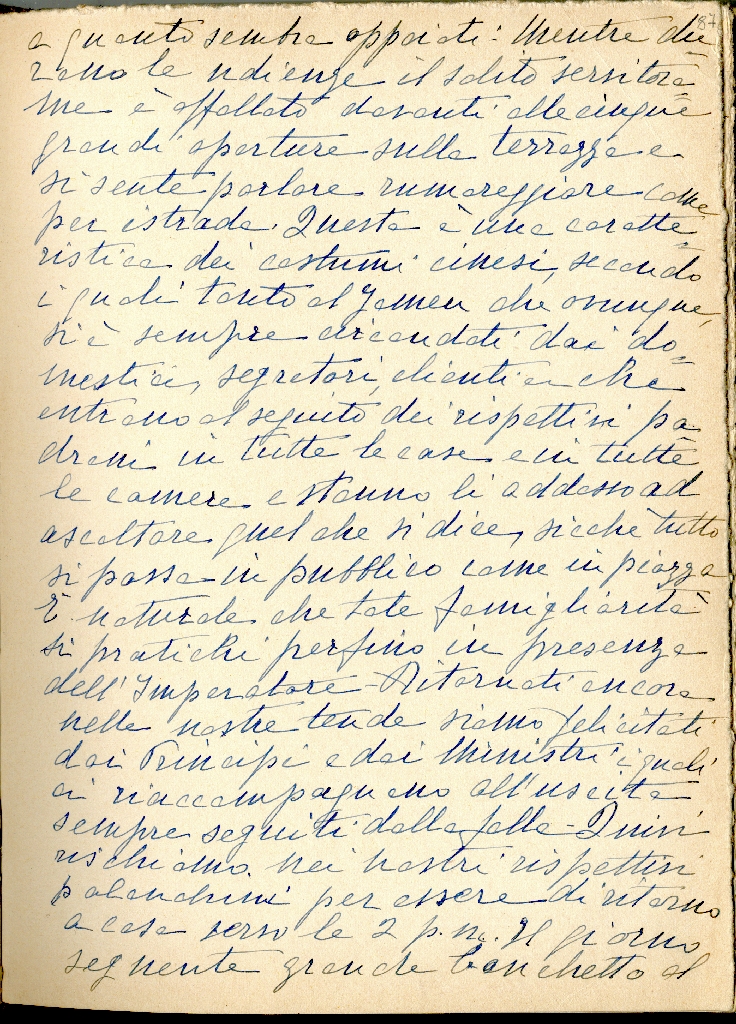 87
a quanto sembra oppiati: Mentre du=
rano le udienze il solito servitora=
me è affollato davanti alle cinque
grandi aperture sulla terrazza e
si sente parlare rumoreggiare come
per istrada. Questa è una caratte=
ristica dei costumi cinesi, secondo
i quali tanto al Jamen che ovunque,
si è sempre circondati dai do=
mestici, segretari, clienti ec che
entrano al seguito dei rispettivi pa=
droni in tutte le case e in tutte
le camere e stanno lì addosso ad
ascoltare quel che si dice, sicchè tutto
si passa in pubblico come in piazza
È naturale che tale famigliarità
si pratichi perfino in presenza
dell'Imperatore - Ritornati ancora
nelle nostre tende siamo felicitati
dai Principi e dai Ministri i quali
ci riaccompagnano all'uscita
sempre seguiti dalla folla - Quivi
rischiamo nei nostri rispettivi
palanchini per essere di ritorno
a casa verso le 2 p.m. Il giorno
seguente grande banchetto al